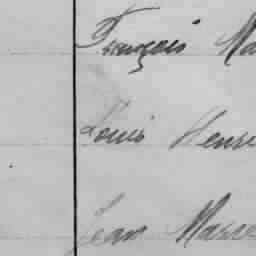 François Ma
Louis Henri
Jean Masse